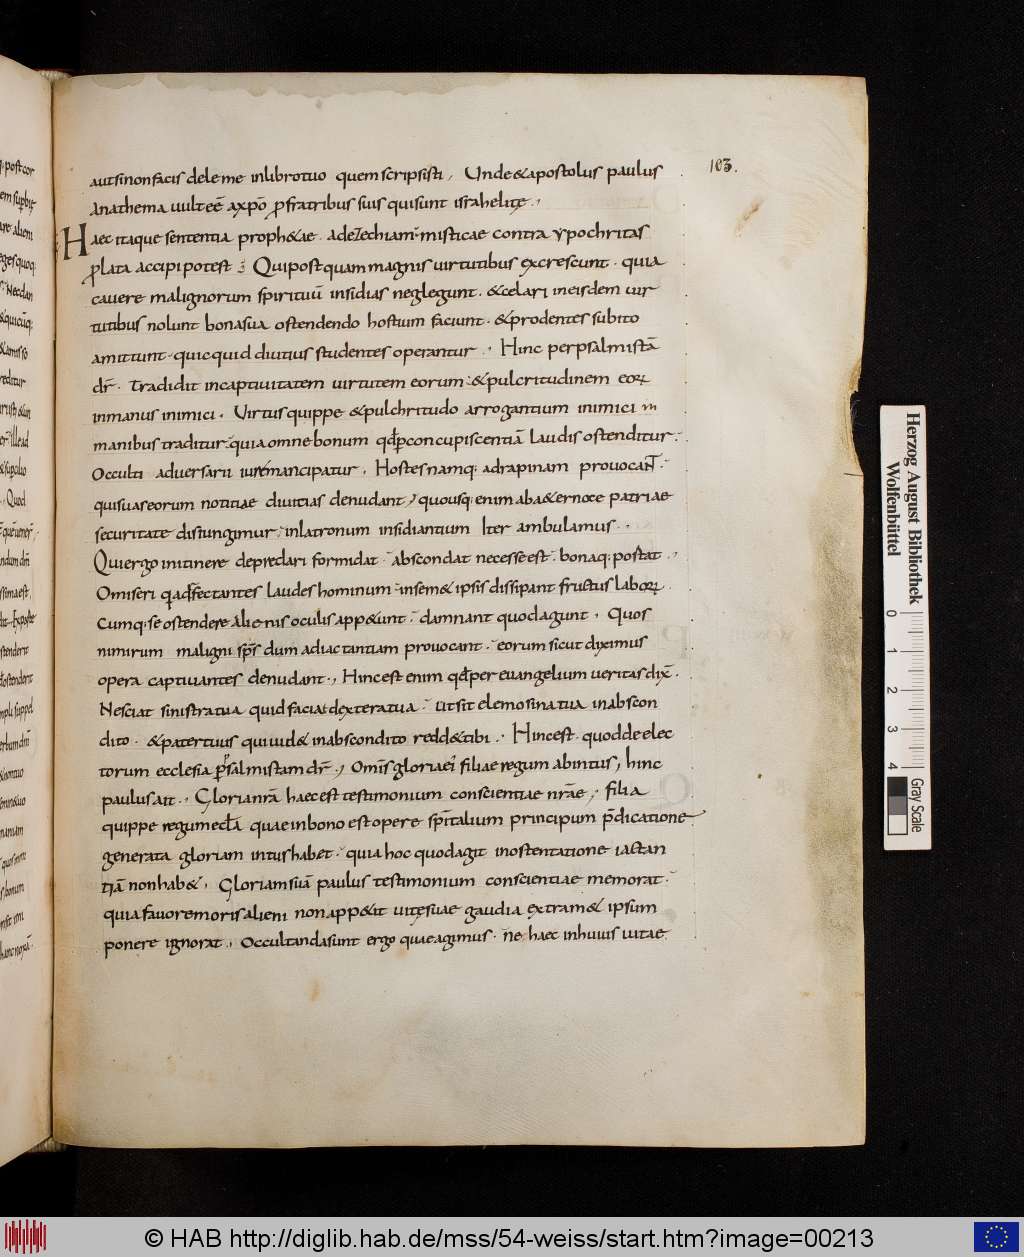 103.
aut si non facis dele me in libro tuo quem scripsisti, Unde & apostolus paulus
Anathema uult eē a xpō p̱ fratribus suis qui sunt israhelitę.,
Haec itaque sententia proph&ae . ad ezechiam misticae contra ypochritas
p̱lata accipi potest ; Qui postquam magnis uirtutibus excrescunt . quia
cauere malignorum spirituū insidias neglegunt . & celari in eisdem uir
tutibus nolunt bona sua ostendendo hostium faciunt . & prodentes subito
amittunt . quicquid diutius studentes operantur ., Hinc per psalmistā
dr̄ . Tradidit in captiuitatem uirtutem eorum . & pulcritudinem eoꝝ
in manus inimici . Uirtus quippe & pulchritudo arrogantium inimici in
manibus traditur . quia omne bonum qđ p̱ concupiscentiā laudis ostenditur .
Occulti aduersarii iuri emancipatur , Hostes namq; ad rapinam prouocant .
qui suas eorum notitiae diuitias denudant , quousq; enim ab a&erne patriae
securitate disiungimur . in latronum insidiantium iter ambulamus .,
Qui ergo in itinere depredari formidat . abscondat necesse est . bona q; portat .,
O miseri qͥ adfectantes laudes hominum . in sem& ipsis dissipant fructus laboꝝ .
Cumq; se ostendere alienis oculis app&unt . damnant quod agunt . Quos
nimirum maligni sp̄s dum ad iactantiam prouocant . eorum sicut diximus
opera captiuantes denudant ., Hinc est enim qđ per euangelium ueritas dix̄ .
Nesciat sinistra tua quid faciat dextera tua . ut sit elemosina tua in abscon
dito . & pater tuus qui uid& in abscondito redd& tibi ., Hinc est . quod de elec
torum ecclesia p̱ psalmistam dr̄ ., Omīs gloria ei filiae regum ab intus , hinc
paulus ait ., Gloria nr̄a haec est testimonium conscientiae nr̄ae ., filia
quippe regum eccła quae in bono est opere sp̄italium principum p̄dicatione
generata gloriam intus habet . quia hoc quod agit in ostentatione iactan
tiā non hab& . Gloriam suā paulus testimonium conscientiae memorat .
quia fauorem oris alieni non app&it uitę suae gaudia extra m& ipsum
ponere ignorat ., Occultanda sunt ergo quae agimus . ne haec in huius uitae
Herzog August Bibliothek
Wolfenbüttel
0 1 2 3 4
Gray Scale
© HAB http://diglib.hab.de/mss/54-weiss/start.htm?image=00213